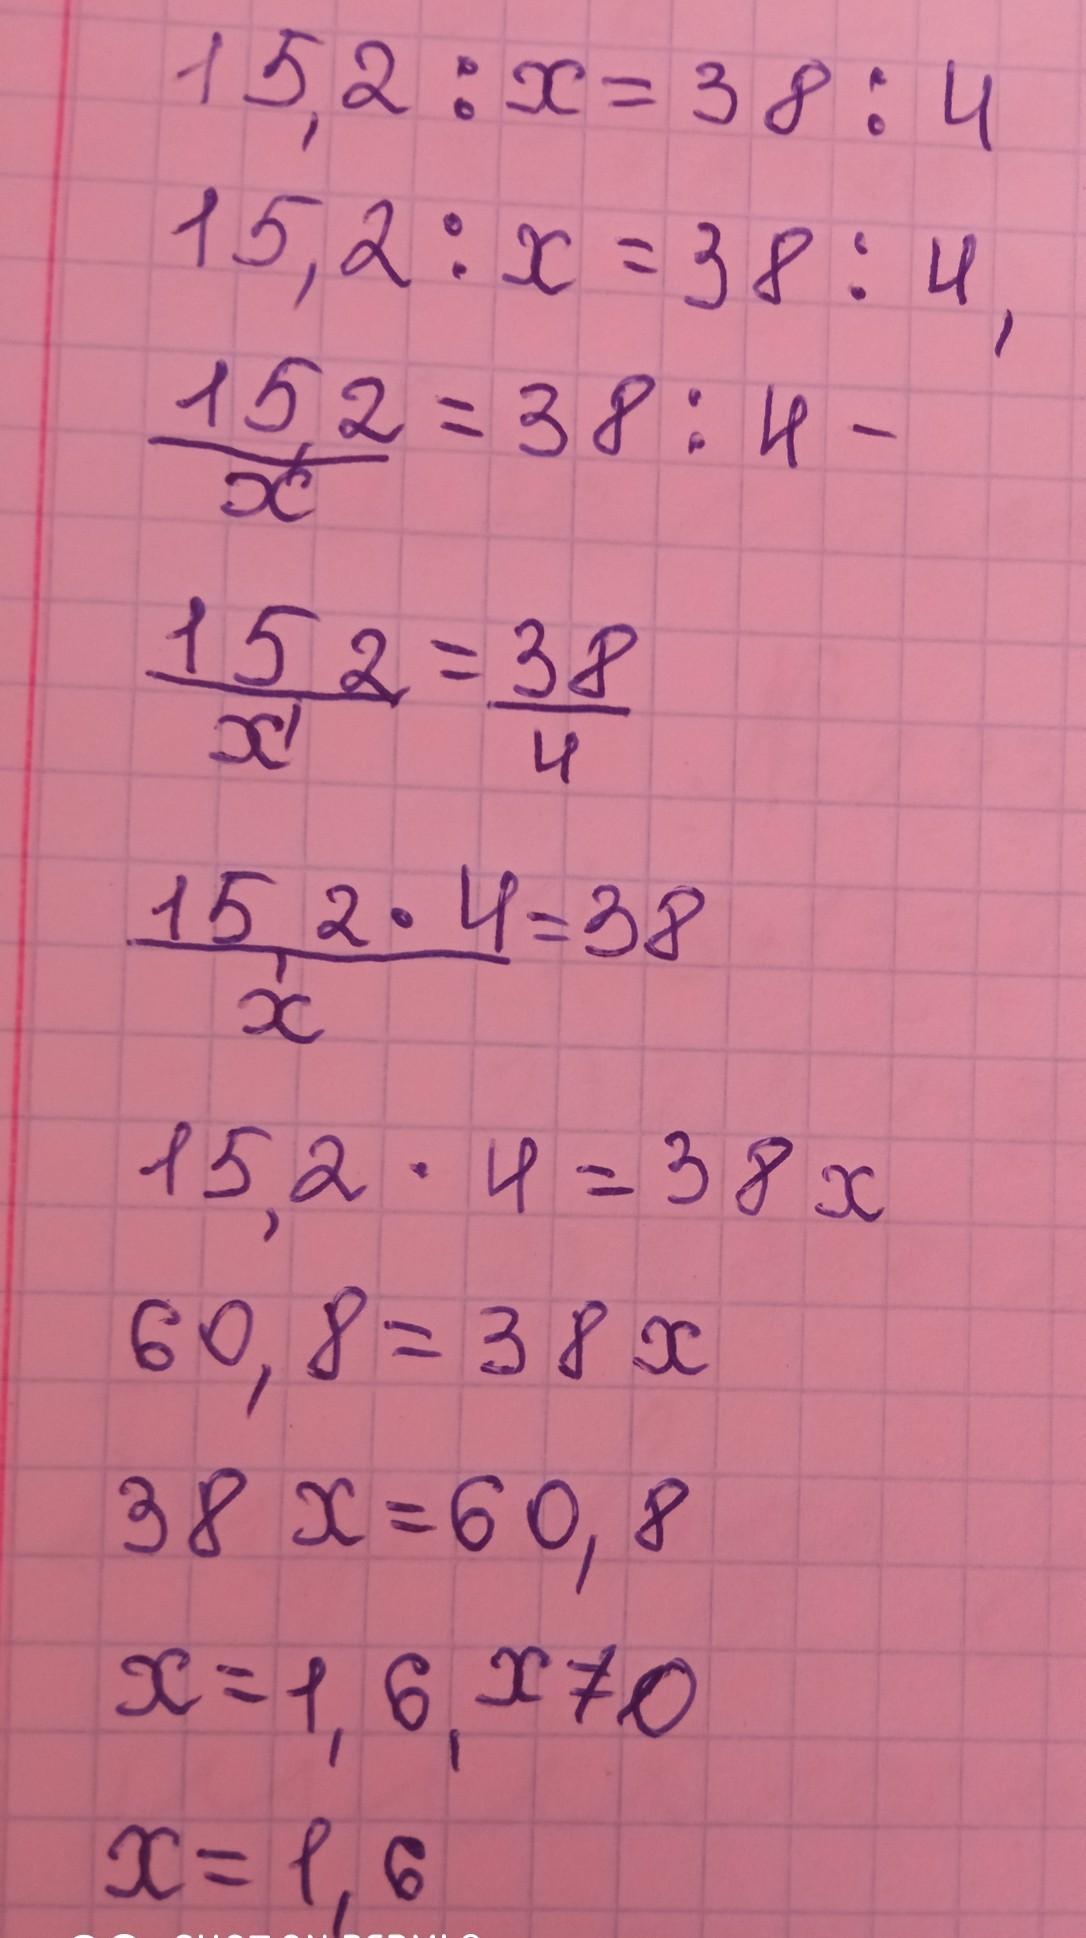 15,2 : x = 38 : 4
15,2 : x = 38 : 4,
15,2 = 38 : 4 -
x
15,2 = 38
x 4
15,2 · 4 = 38
x
15,2 · 4 = 38 x
60,8 = 38 x
38 x = 60,8
x = 1,6, x ≠ 0
x = 1,6